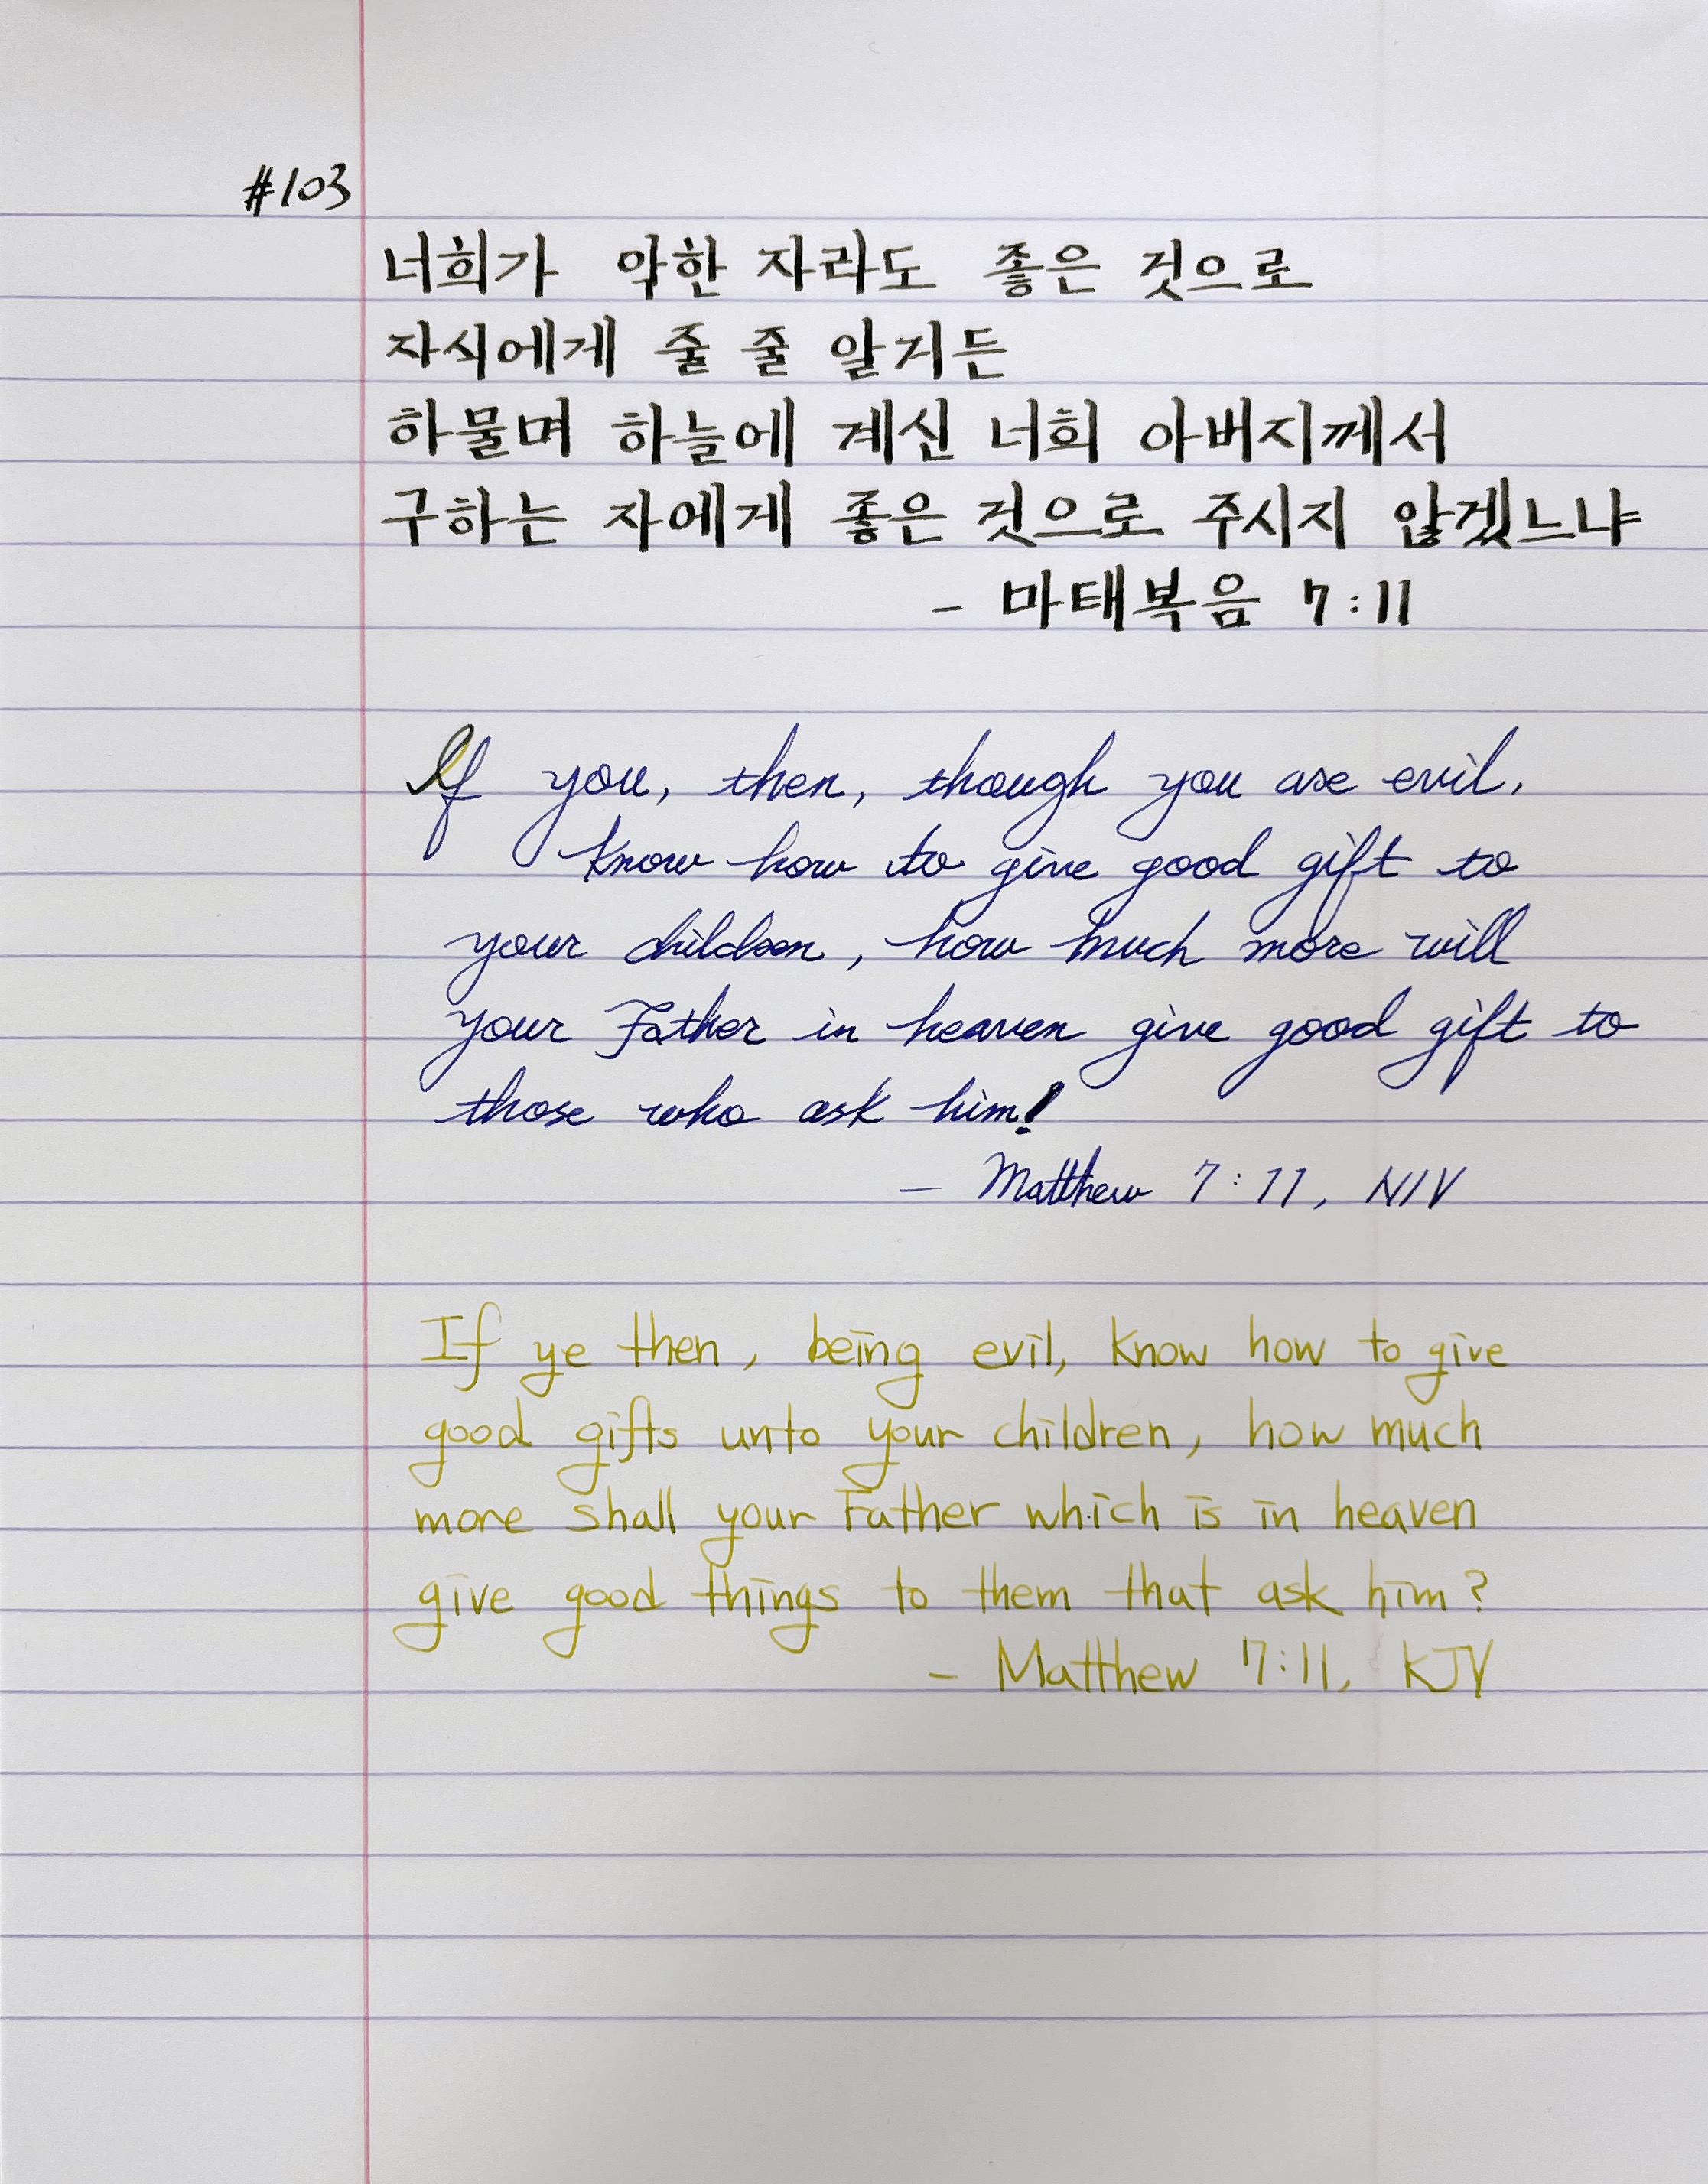 #103
너희가 악한 자라도 좋은 것으로
자식에게 줄 줄 알거든
하물며 하늘에 계신 너희 아버지께서
구하는 자에게 좋은 것으로 주시지 않겠느냐
- 마태복음 7:11
If you, then, though you are evil,
know how to give good gift to
your children, how much more will
your Father in heaven give good gift to
those who ask him!
- Matthew 7:11, NIV
If ye then, being evil, know how to give
good gifts unto your children, how much
more shall your Father which is in heaven
give good things to them that ask him?
- Matthew 7:11, KJV